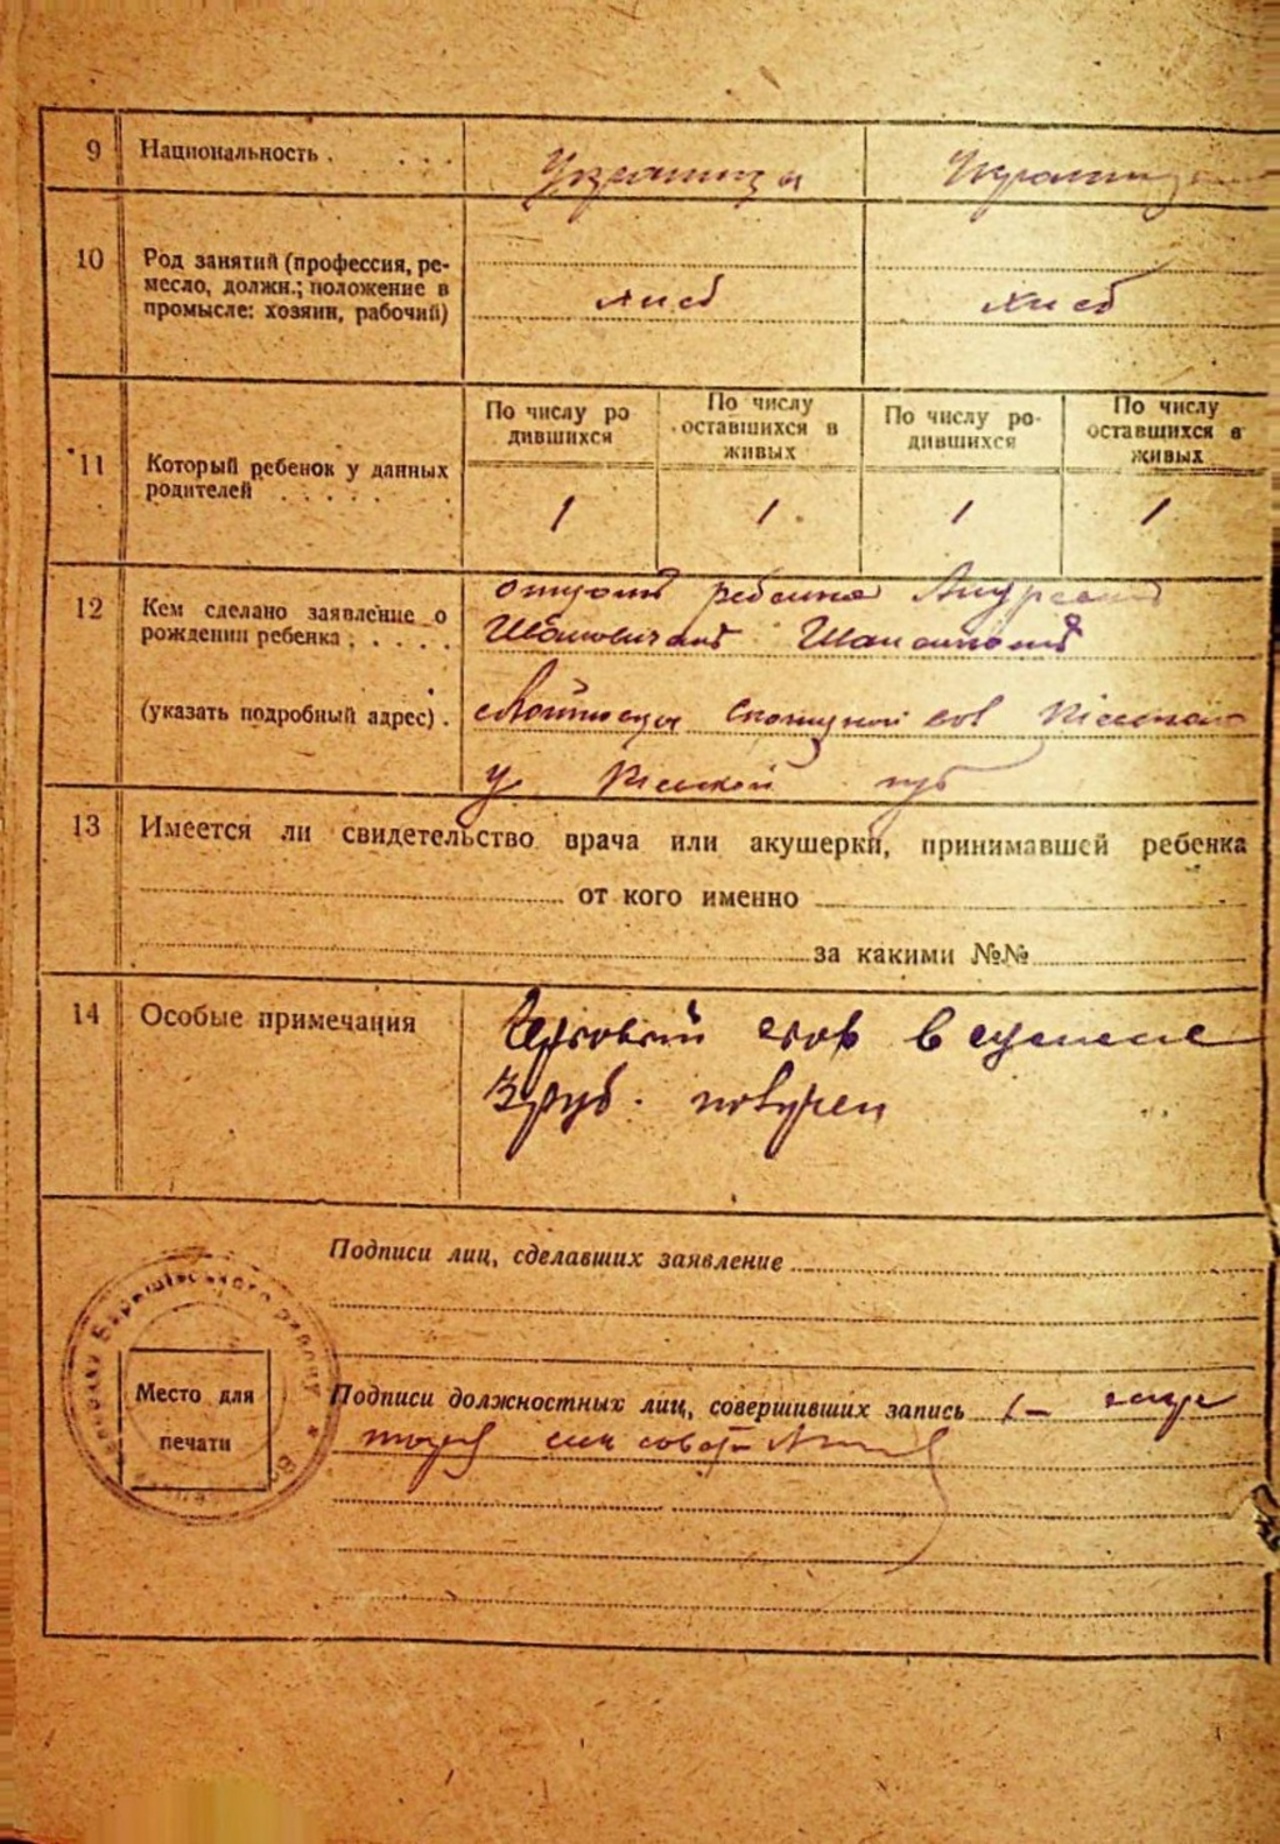 9 Национальность . . . .
Украинцы
10 Род занятий (профессия, ре-
месло, должн.; положение в
промысле: хозяин, рабочий)
хлеб хлеб
По числу ро
дившихся
По числу
оставшихся в
живых
По числу ро-
дившихся
По числу
оставшихся в
живых
11 Который ребенок у данных
родителей . . . . . .
1 1 1 1
12 Кем сделано заявление о
рождении ребенка ; . . . .
отцом ребенка Андреем
(указать подробный адрес) .
у губ
13 Имеется ли свидетельство врача или акушерки, принимавшей ребенка
от кого именно
за какими №№
14 Особые примечания
Гербовый сбор в сумме
3 руб. получен
Подписи лиц, сделавших заявление
Место для
печати
Подписи должностных лиц, совершивших запись